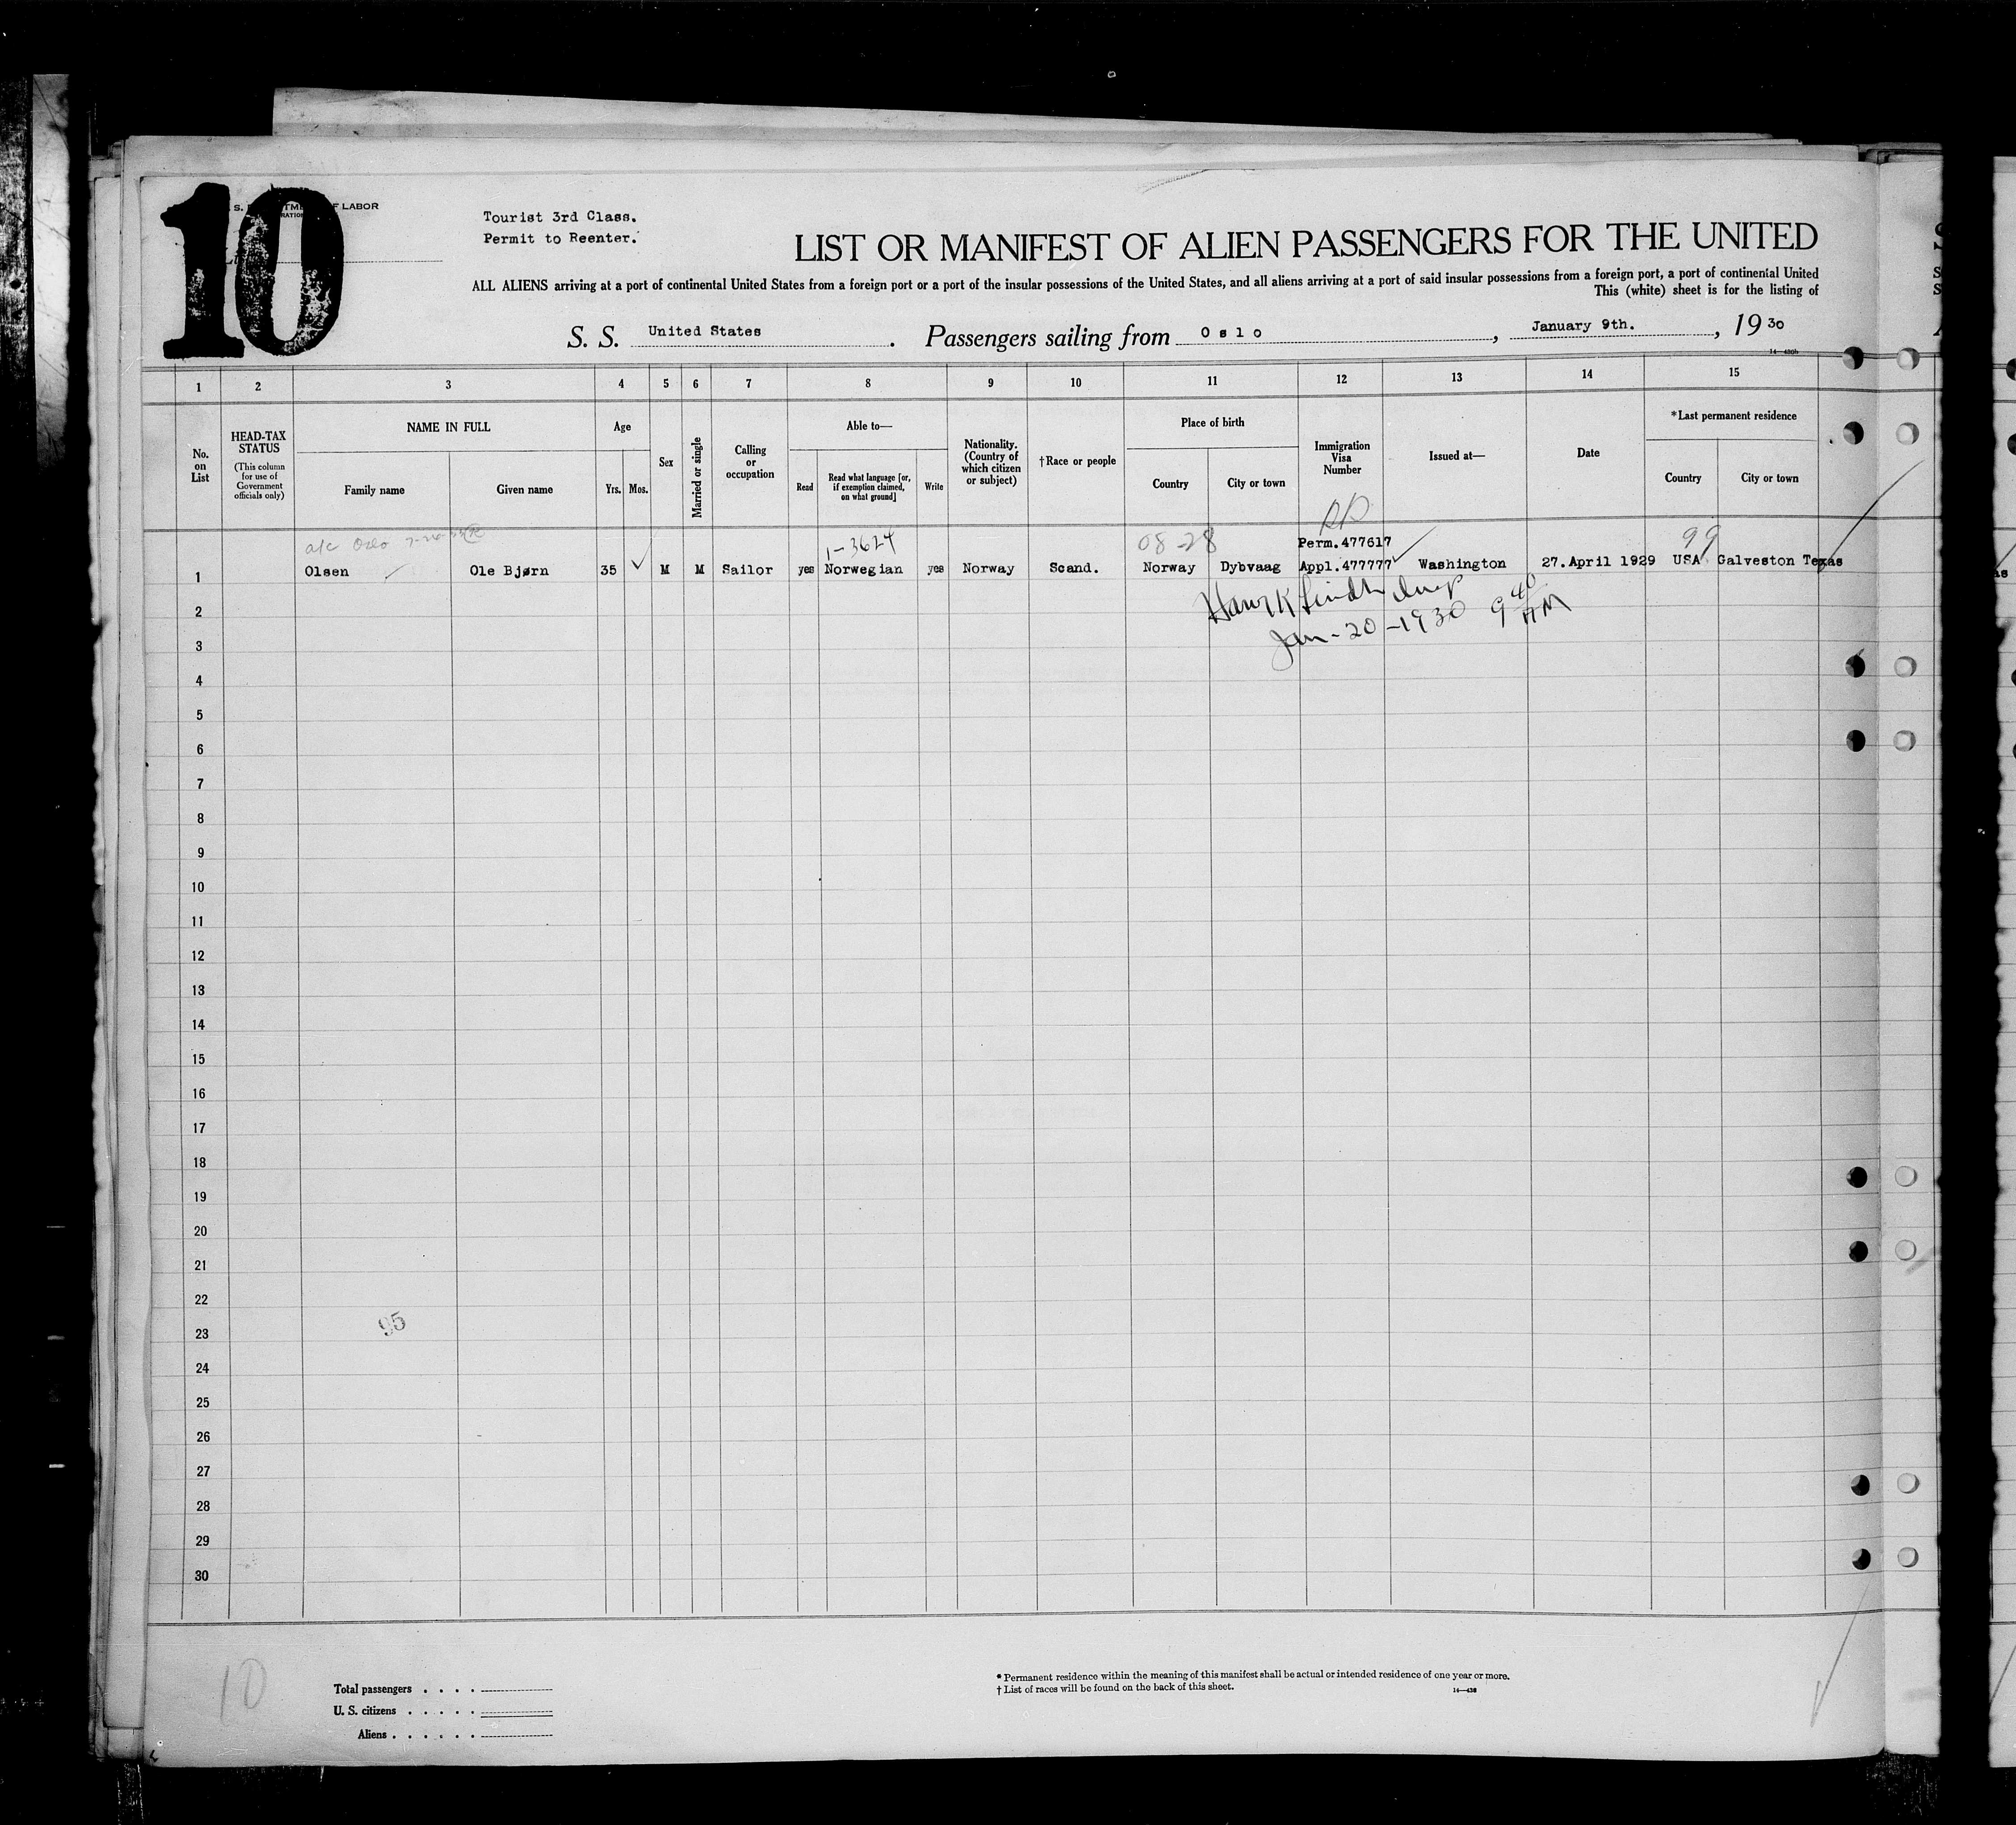 10
LABOR
Tourist 3rd Class.
Permit to Reenter.
LIST OR MANIFEST OF ALIEN PASSENGERS FOR THE UNITED
ALL ALIENS arriving at a port of continental United States from a foreign port or a port of the insular possessions of the United States, and all aliens arriving at a port of said insular possessions from a foreign port, a port of continental United
This (white) sheet is for the listing of
S. S. United States . Passengers sailing from Oslo , January 9th. , 19 30
1 2 3 4 5 6 7 8 9 10 11 12 13 14 15
No. on List
HEAD-TAX STATUS
(This column for use of Government officials only)
NAME IN FULL
Family name
Given name
Age
Yrs. Mos.
Sex
Married or single
Calling or occupation
Able to—
Read
Read what language [or, if exemption claimed, on what ground]
Write
Nationality. (Country of which citizen or subject)
†Race or people
Place of birth
Country
City or town
Immigration Visa Number
Issued at—
Date
*Last permanent residence
Country
City or town
a/c Oslo
1-3624
08-28
99
Perm.477617
1 Olsen Ole Bjørn 35 M M Sailor yes Norwegian yes Norway Scand. Norway Dybvaag Appl.477777 Washington 27.April 1929 USA Galveston Texas
Jan-20-1930 9 40 AM
2
3
4
5
6
7
8
9
10
11
12
13
14
15
16
17
18
19
20
21
22
23
95
24
25
26
27
28
29
30
10
Total passengers . . . .
U. S. citizens . . . . .
Aliens . . . . . .
* Permanent residence within the meaning of this manifest shall be actual or intended residence of one year or more.
† List of races will be found on the back of this sheet.